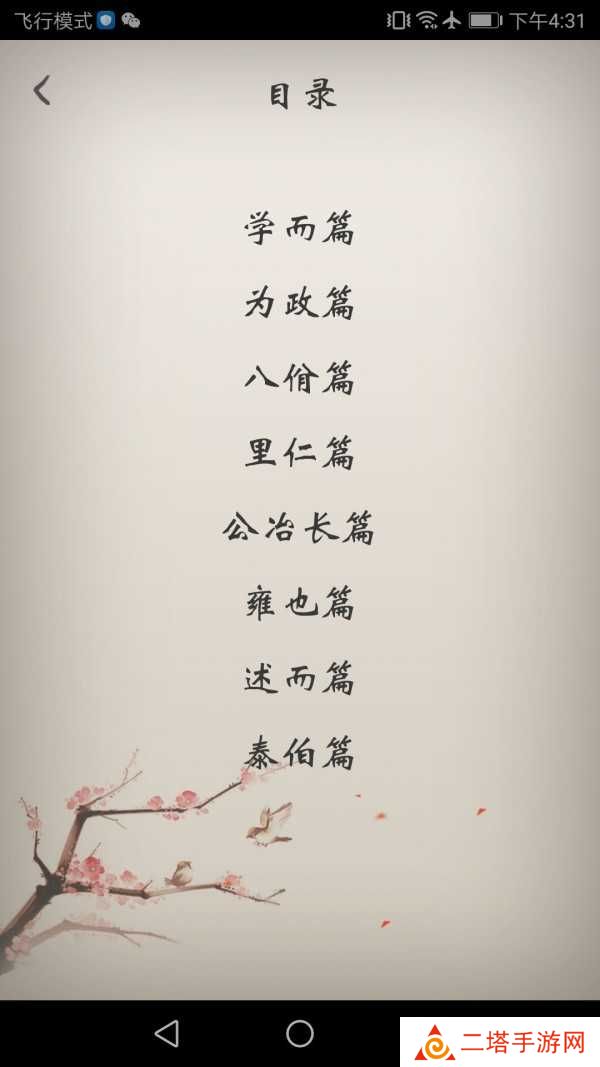 飞行模式
下午4:31
目录
学而篇
为政篇
八佾篇
里仁篇
公冶长篇
雍也篇
述而篇
泰伯篇
二塔手游网